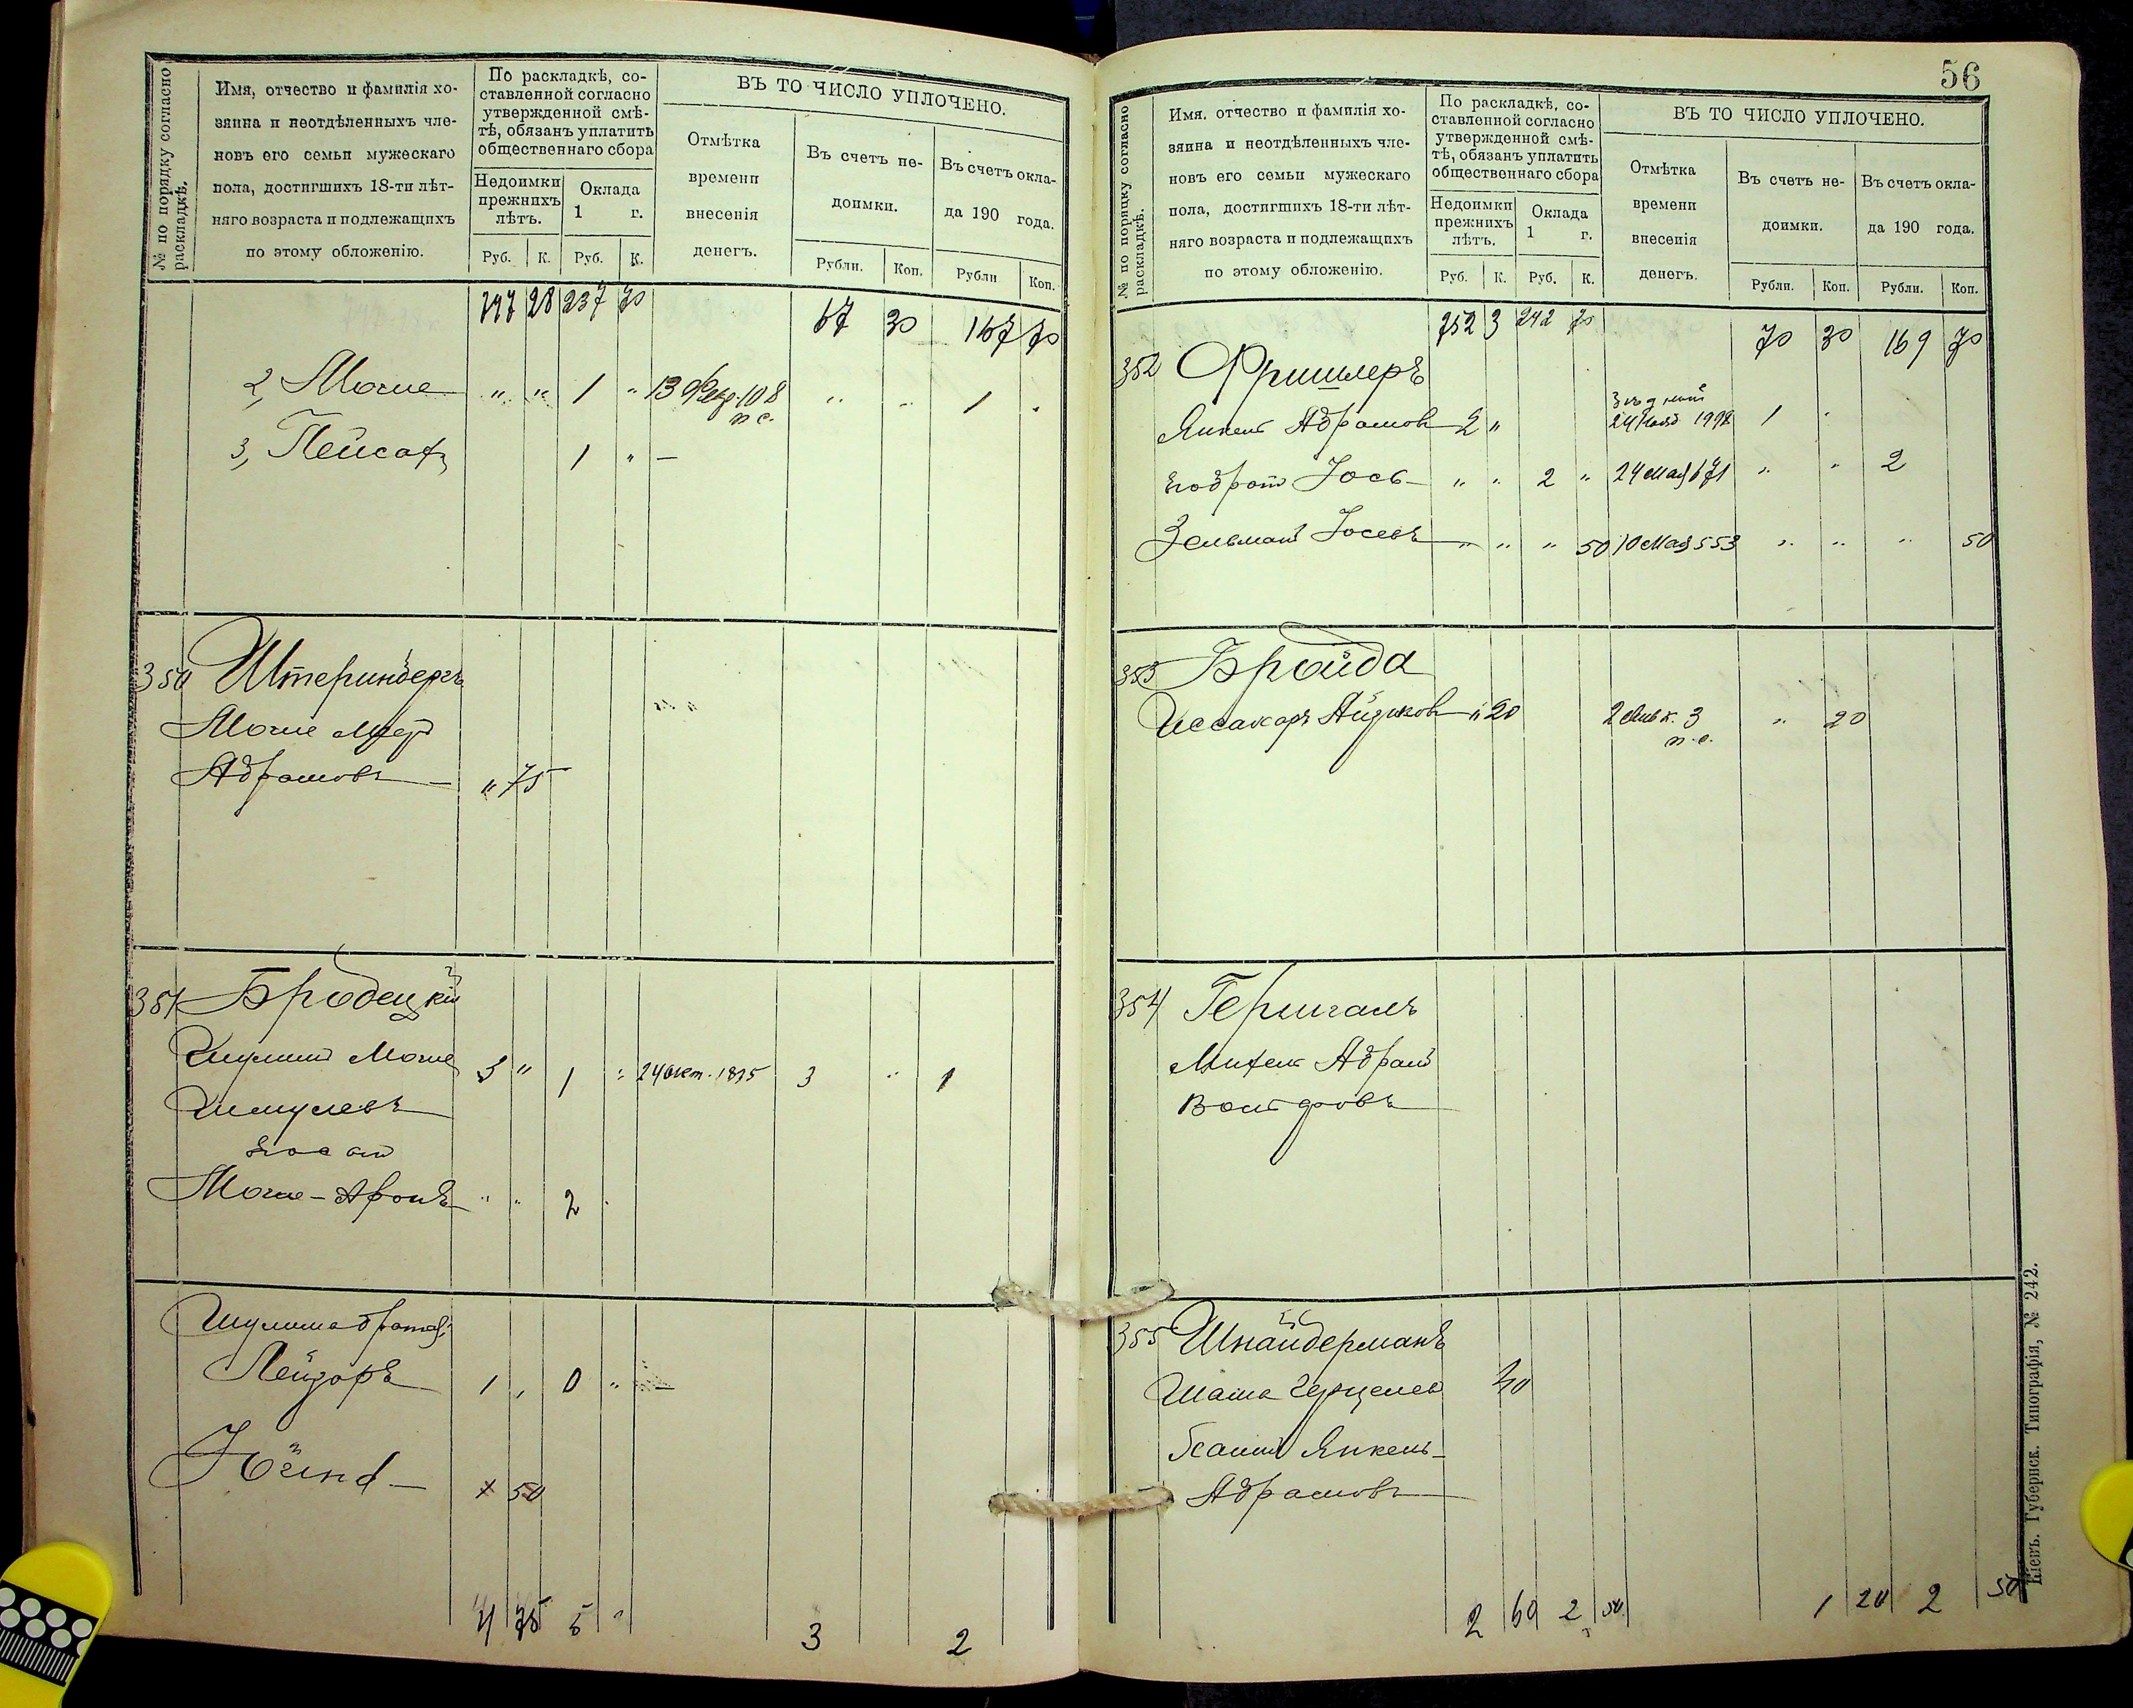 № по порядку согласно раскладкѣ.
Имя, отчество и фамилія хо-
зяина и неотдѣленныхъ чле-
новъ его семьи мужескаго
пола, достигшихъ 18-ти лѣт-
няго возраста и подлежащихъ
по этому обложенію.
По раскладкѣ, со-
ставленной согласно
утвержденной смѣ-
тѣ, обязанъ уплатить
общественнаго сбора
Недоимки
прежнихъ
лѣтъ.
Оклада
1 г.
Руб. К. Руб. К.
ВЪ ТО ЧИСЛО УПЛОЧЕНО.
Отмѣтка
времени
внесенія
денегъ.
Въ счетъ не-
доимки.
Въ счетъ окла-
да 190 года.
Рубли. Коп. Рубли Коп.
747 28 237 70 67 30 167 70
2, Мошие " " 1 " 13 Февр. 108 " " 1 "
п с.
3, Пейсахъ 1 " —
350 Штеринбергъ
Мошие
Абрамовъ — " 75
351 Бродецкій
Шулимъ Мошие 3 " 1 " 24 Окт. 1825 3 " 1
Шмулевъ
Мошие-Аронъ " " 2 "
Шулима братья:
Лейзоръ 1 , 0 " —
50
4 75 5 " 3 2
56
№ по порядку согласно раскладкѣ.
Имя, отчество и фамилія хо-
зяина и неотдѣленныхъ чле-
новъ его семьи мужескаго
пола, достигшихъ 18-ти лѣт-
няго возраста и подлежащихъ
по этому обложенію.
По раскладкѣ, со-
ставленной согласно
утвержденной смѣ-
тѣ, обязанъ уплатить
общественнаго сбора
Недоимки
прежнихъ
лѣтъ.
Оклада
1 г.
Руб. К. Руб. К.
ВЪ ТО ЧИСЛО УПЛОЧЕНО.
Отмѣтка
времени
внесенія
денегъ.
Въ счетъ не-
доимки.
Въ счетъ окла-
да 190 года.
Рубли. Коп. Рубли. Коп.
752 3 242 70 70 30 169 70
352 Фришлеръ
Янкель Абрамовъ 2 " 24 Нояб 1998 1 "
Іось — " " 2 " 24 Мая 671 " " 2
Зельманъ Іосевъ — " " " 50 10 Мая 553 " " " 50
353 Бройда
Иссахаръ Айзиковъ " 20 2 Янв к. 3 " 20
п. с.
354 Гершгалъ
Михель Абрамъ
Вольфовъ
355 Шнайдерманъ
Шама Герцелев 40
Янкель-
Абрамовъ
2 60 2 50 1 20 2 50
Кіевъ. Губернск. Типографія, № 242.